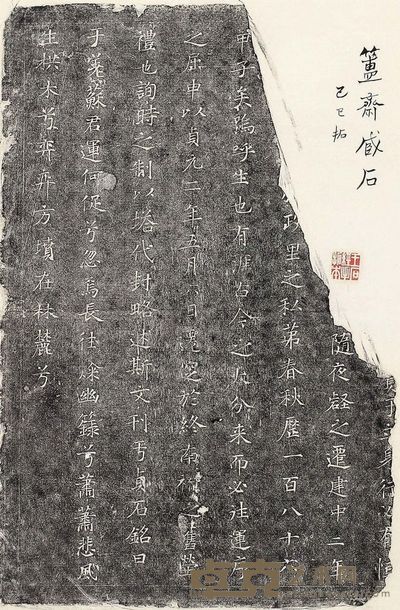 簠齋臧石
己巳拓
隨夜壑之遷建中二年
政里之私第春秋歷一百八十六
甲子矣嗚呼生也有涯古今之分來而必往運
之屈申以貞元二年五月日還窆於終南之舊塋
禮也詢時之制以塔代封略述斯文刊乎貞石銘曰
于嗟蘇君運何促兮忽焉長往幽籙兮蕭蕭悲風
生拱木兮弈弈方墳在林麓兮